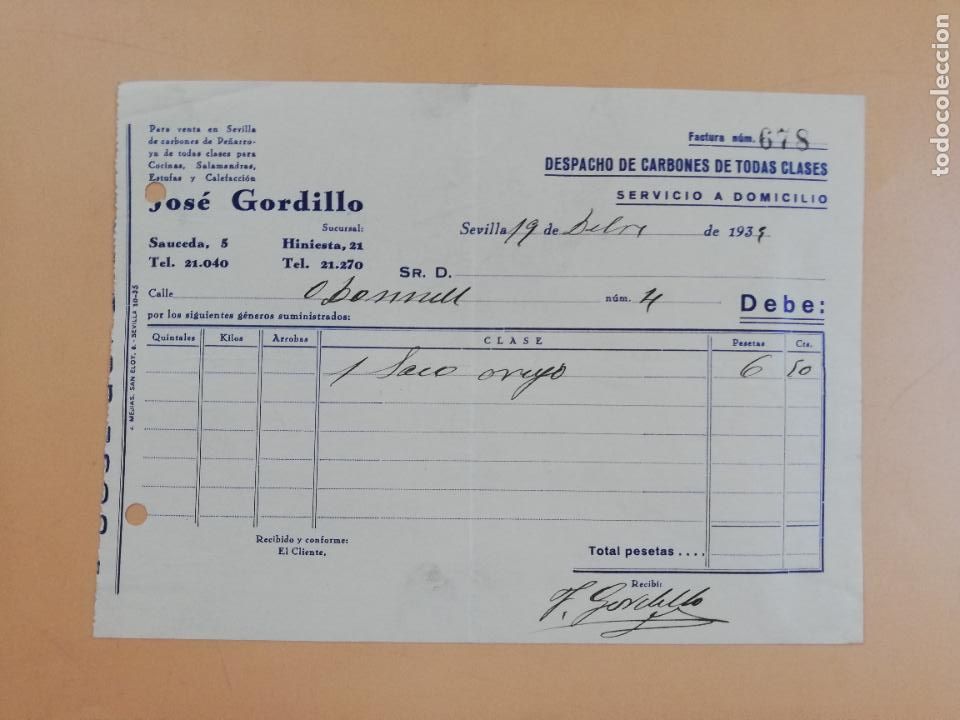 Para venta en Sevilla
de carbones de Peñarro-
ya de todas clases para
Cocinas, Salamandras,
Estufas y Calefacción
José Gordillo
Sucursal:
Sauceda, 5 Hiniesta, 21
Tel. 21.040 Tel. 21.270
Factura núm. 678
DESPACHO DE CARBONES DE TODAS CLASES
SERVICIO A DOMICILIO
Sevilla 19 de de 193
SR. D.
Calle O Donnell núm. 4 Debe:
por los siguientes géneros suministrados:
Quintales Kilos Arrobas CLASE Pesetas Cts.
1 Saco orujo 6 50
Recibido y conforme:
El Cliente,
Total pesetas ....
Recibí:
Gordillo
J. MEJIAS. SAN ELOY, 6. - SEVILLA 10-35
todocoleccion